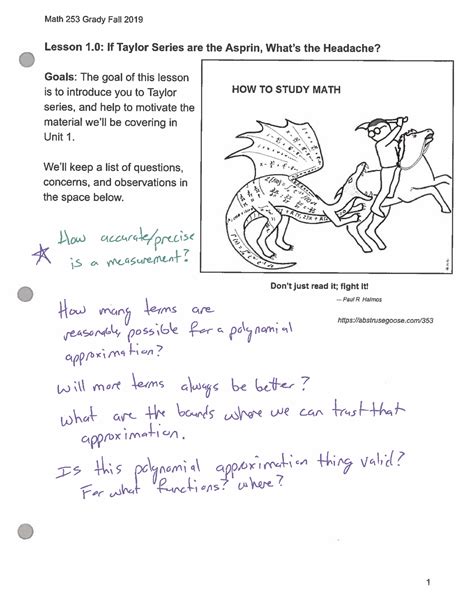 Math 253 Grady Fall 2019
Lesson 1.0: If Taylor Series are the Asprin, What's the Headache?
Goals: The goal of this lesson
is to introduce you to Taylor
series, and help to motivate the
material we'll be covering in
Unit 1.
We'll keep a list of questions,
concerns, and observations in
the space below.
HOW TO STUDY MATH
Don't just read it; fight it!
— Paul R Halmos
https://abstrusegoose.com/353
How accurate/precise
is a measurement?
How many terms are
reasonably possible for a polynomial
approximation?
Will more terms always be better?
What are the bounds where we can trust that
approximation.
Is this polynomial approximation thing valid?
For what functions? where?
1